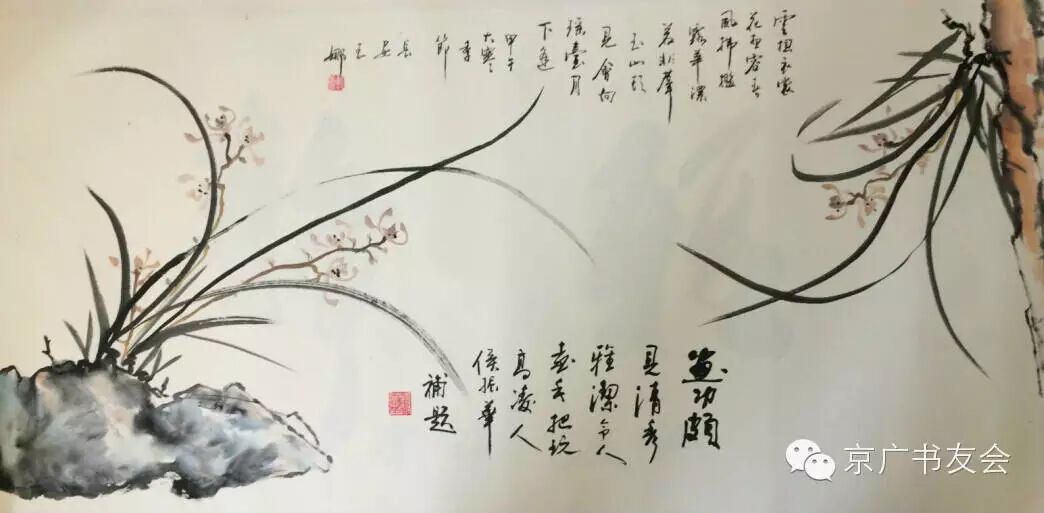 雲想衣裳
花想容春
風拂檻
露華濃
若非羣
玉山頭
見會向
瑶臺月
下逢
甲午
大寒
季
節
長
安
王
娜
畫功頗
見清秀
雅潔令人
把玩
高凌人
侯振華
補題
京广书友会